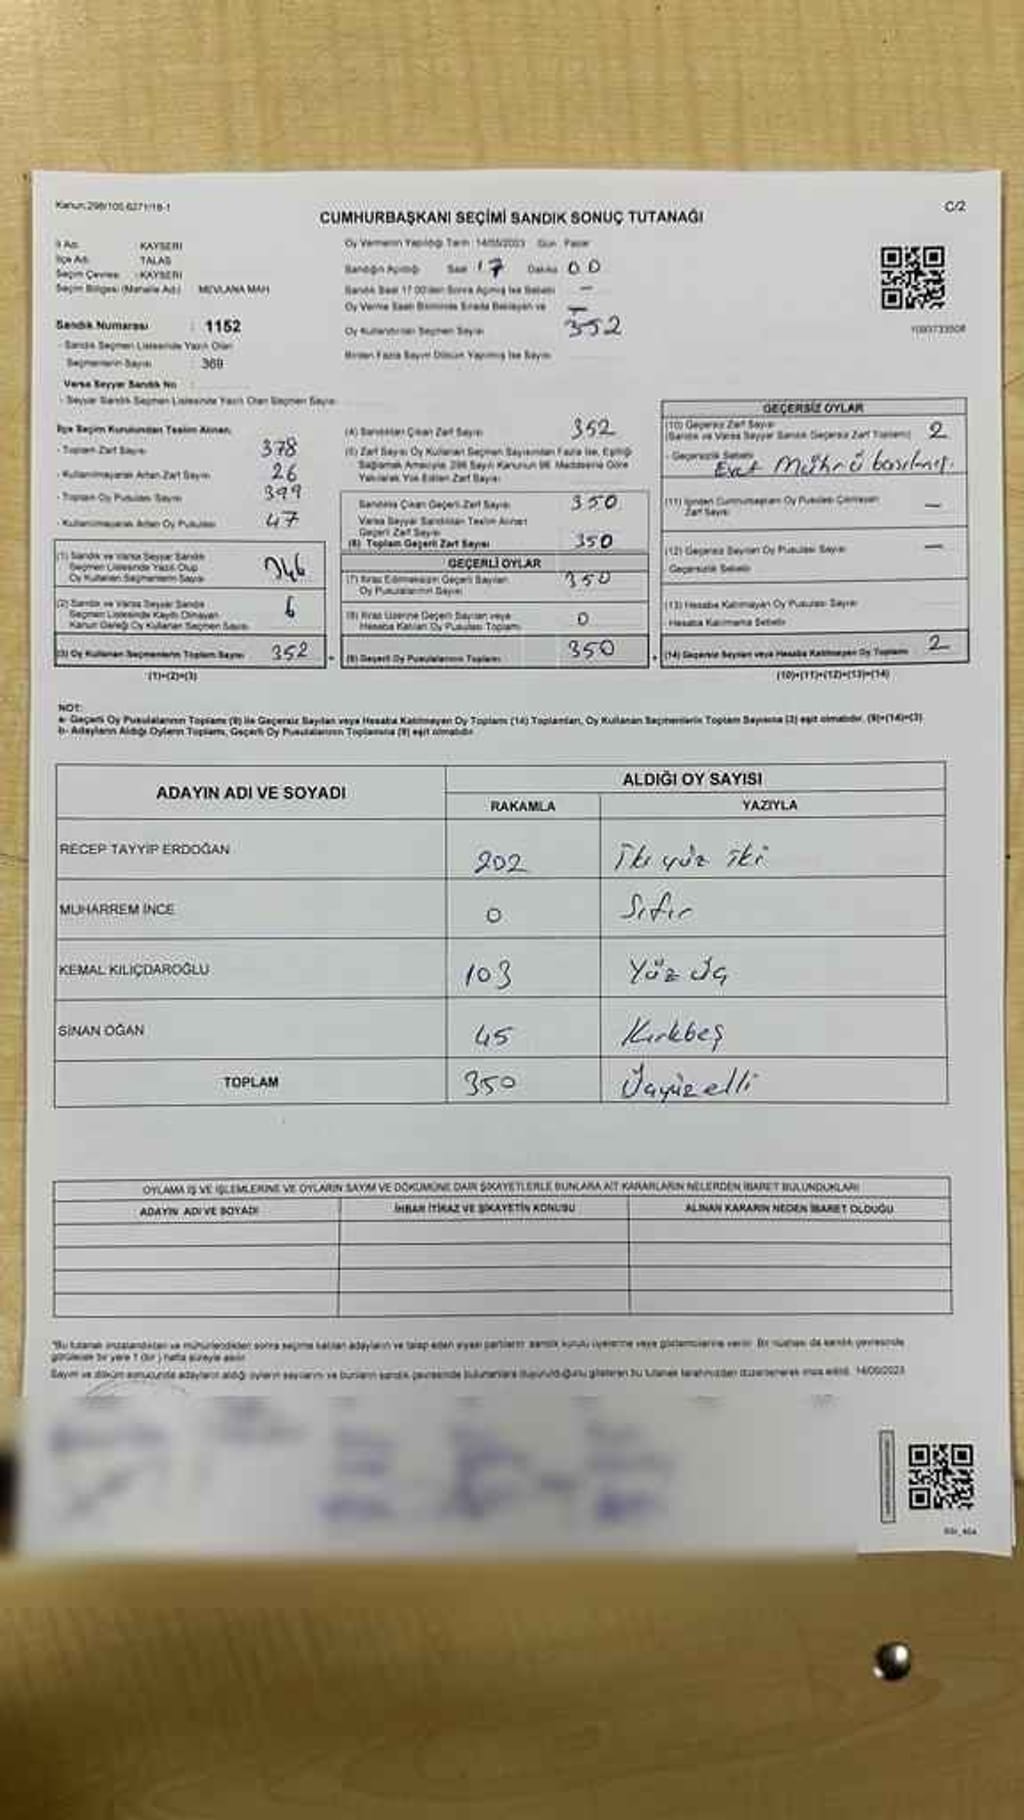 Kanun:298/105,6271/18-1
CUMHURBAŞKANI SEÇİMİ SANDIK SONUÇ TUTANAĞI
C/2
İl Adı : KAYSERİ
İlçe Adı : TALAS
Seçim Çevresi : KAYSERİ
Seçim Bölgesi (Mahalle Adı) : MEVLANA MAH
Sandık Numarası : 1152
- Sandık Seçmen Listesinde Yazılı Olan
Seçmenlerin Sayısı : 369
Varsa Seyyar Sandık No :
- Seyyar Sandık Seçmen Listesinde Yazılı Olan Seçmen Sayısı
Oy Vermenin Yapıldığı Tarih : 14/05/2023 Gün : Pazar
Sandığın Açıldığı Saat 17 Dakika 00
Sandık Saat 17:00'den Sonra Açılmış İse Sebebi -
Oy Verme Saati Bitiminde Sırada Bekleyen ve
Oy Kullandırılan Seçmen Sayısı 352
Birden Fazla Sayım Döküm Yapılmış İse Sayısı
İlçe Seçim Kurulundan Teslim Alınan:
- Toplam Zarf Sayısı 378
- Kullanılmayarak Artan Zarf Sayısı 26
- Toplam Oy Pusulası Sayısı 399
- Kullanılmayarak Artan Oy Pusulası 47
(1) Sandık ve Varsa Seyyar Sandık
Seçmen Listesinde Yazılı Olup
Oy Kullanan Seçmenlerin Sayısı 346
(2) Sandık ve Varsa Seyyar Sandık
Seçmen Listesinde Kayıtlı Olmayan
Kanun Gereği Oy Kullanan Seçmen Sayısı 6
(3) Oy Kullanan Seçmenlerin Toplam Sayısı 352
(1)+(2)=(3)
(4) Sandıktan Çıkan Zarf Sayısı 352
(5) Zarf Sayısı Oy Kullanan Seçmen Sayısından Fazla İse, Eşitliği
Sağlamak Amacıyla, 298 Sayılı Kanunun 98. Maddesine Göre
Yakılarak Yok Edilen Zarf Sayısı
Sandıkta Çıkan Geçerli Zarf Sayısı 350
Varsa Seyyar Sandıktan Teslim Alınan
Geçerli Zarf Sayısı
(6) Toplam Geçerli Zarf Sayısı 350
GEÇERLİ OYLAR
(7) İtiraz Edilmeksizin Geçerli Sayılan
Oy Pusulalarının Sayısı 350
(8) İtiraz Üzerine Geçerli Sayılan veya
Hesaba Katılan Oy Pusulası Toplamı 0
(9) Geçerli Oy Pusulalarının Toplamı 350
GEÇERSİZ OYLAR
(10) Geçersiz Zarf Sayısı
(Sandık ve Varsa Seyyar Sandık Geçersiz Zarf Toplamı) 2
- Geçersizlik Sebebi
Evet Mührü basılmış.
(11) İçinden Cumhurbaşkanı Oy Pusulası Çıkmayan
Zarf Sayısı -
(12) Geçersiz Sayılan Oy Pusulası Sayısı -
Geçersizlik Sebebi
(13) Hesaba Katılmayan Oy Pusulası Sayısı
Hesaba Katılmama Sebebi
(14) Geçersiz Sayılan veya Hesaba Katılmayan Oy Toplamı 2
(10)+(11)+(12)+(13)=(14)
NOT:
a- Geçerli Oy Pusulalarının Toplamı (9) ile Geçersiz Sayılan veya Hesaba Katılmayan Oy Toplamı (14) Toplamları, Oy Kullanan Seçmenlerin Toplam Sayısına (3) eşit olmalıdır. (9)+(14)=(3)
b- Adayların Aldığı Oyların Toplamı, Geçerli Oy Pusulalarının Toplamına (9) eşit olmalıdır.
ADAYIN ADI VE SOYADI
ALDIĞI OY SAYISI
RAKAMLA YAZIYLA
RECEP TAYYİP ERDOĞAN 202 İki yüz iki
MUHARREM İNCE 0 Sıfır
KEMAL KILIÇDAROĞLU 103 Yüz üç
SİNAN OĞAN 45 Kırkbeş
TOPLAM 350 Üçyüzelli
OYLAMA İŞ VE İŞLEMLERİNE VE OYLARIN SAYIM VE DÖKÜMÜNE DAİR ŞİKAYETLERLE BUNLARA AİT KARARLARIN NELERDEN İBARET BULUNDUKLARI
ADAYIN ADI VE SOYADI İHBAR İTİRAZ VE ŞİKAYETİN KONUSU ALINAN KARARIN NEDEN İBARET OLDUĞU
*Bu tutanak imzalandıktan ve mühürlendikten sonra seçime katılan adayların ve talep eden siyasi partilerin sandık kurulu üyelerine veya gözlemcilerine verilir. Bir nüshası da sandık çevresinde
görülecek bir yere 1 (bir) hafta süreyle asılır.
Sayım ve döküm sonucunda adayların aldığı oyların sayılarını ve bunların sandık çevresinde bulunanlara duyurulduğunu gösteren bu tutanak tarafımızdan düzenlenerek imza edildi. 14/05/2023